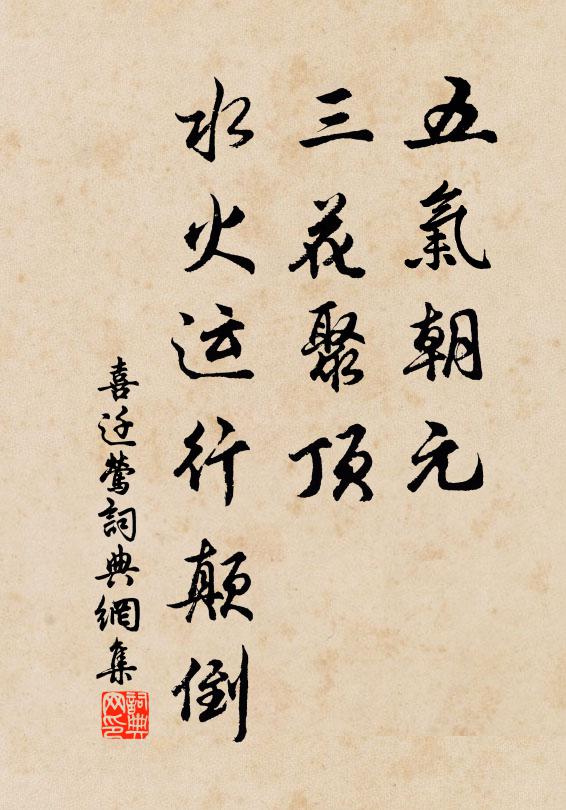 五氣朝元
三花聚顶
水火运行颠倒
喜迁鶯詞典網集
詞典
网印